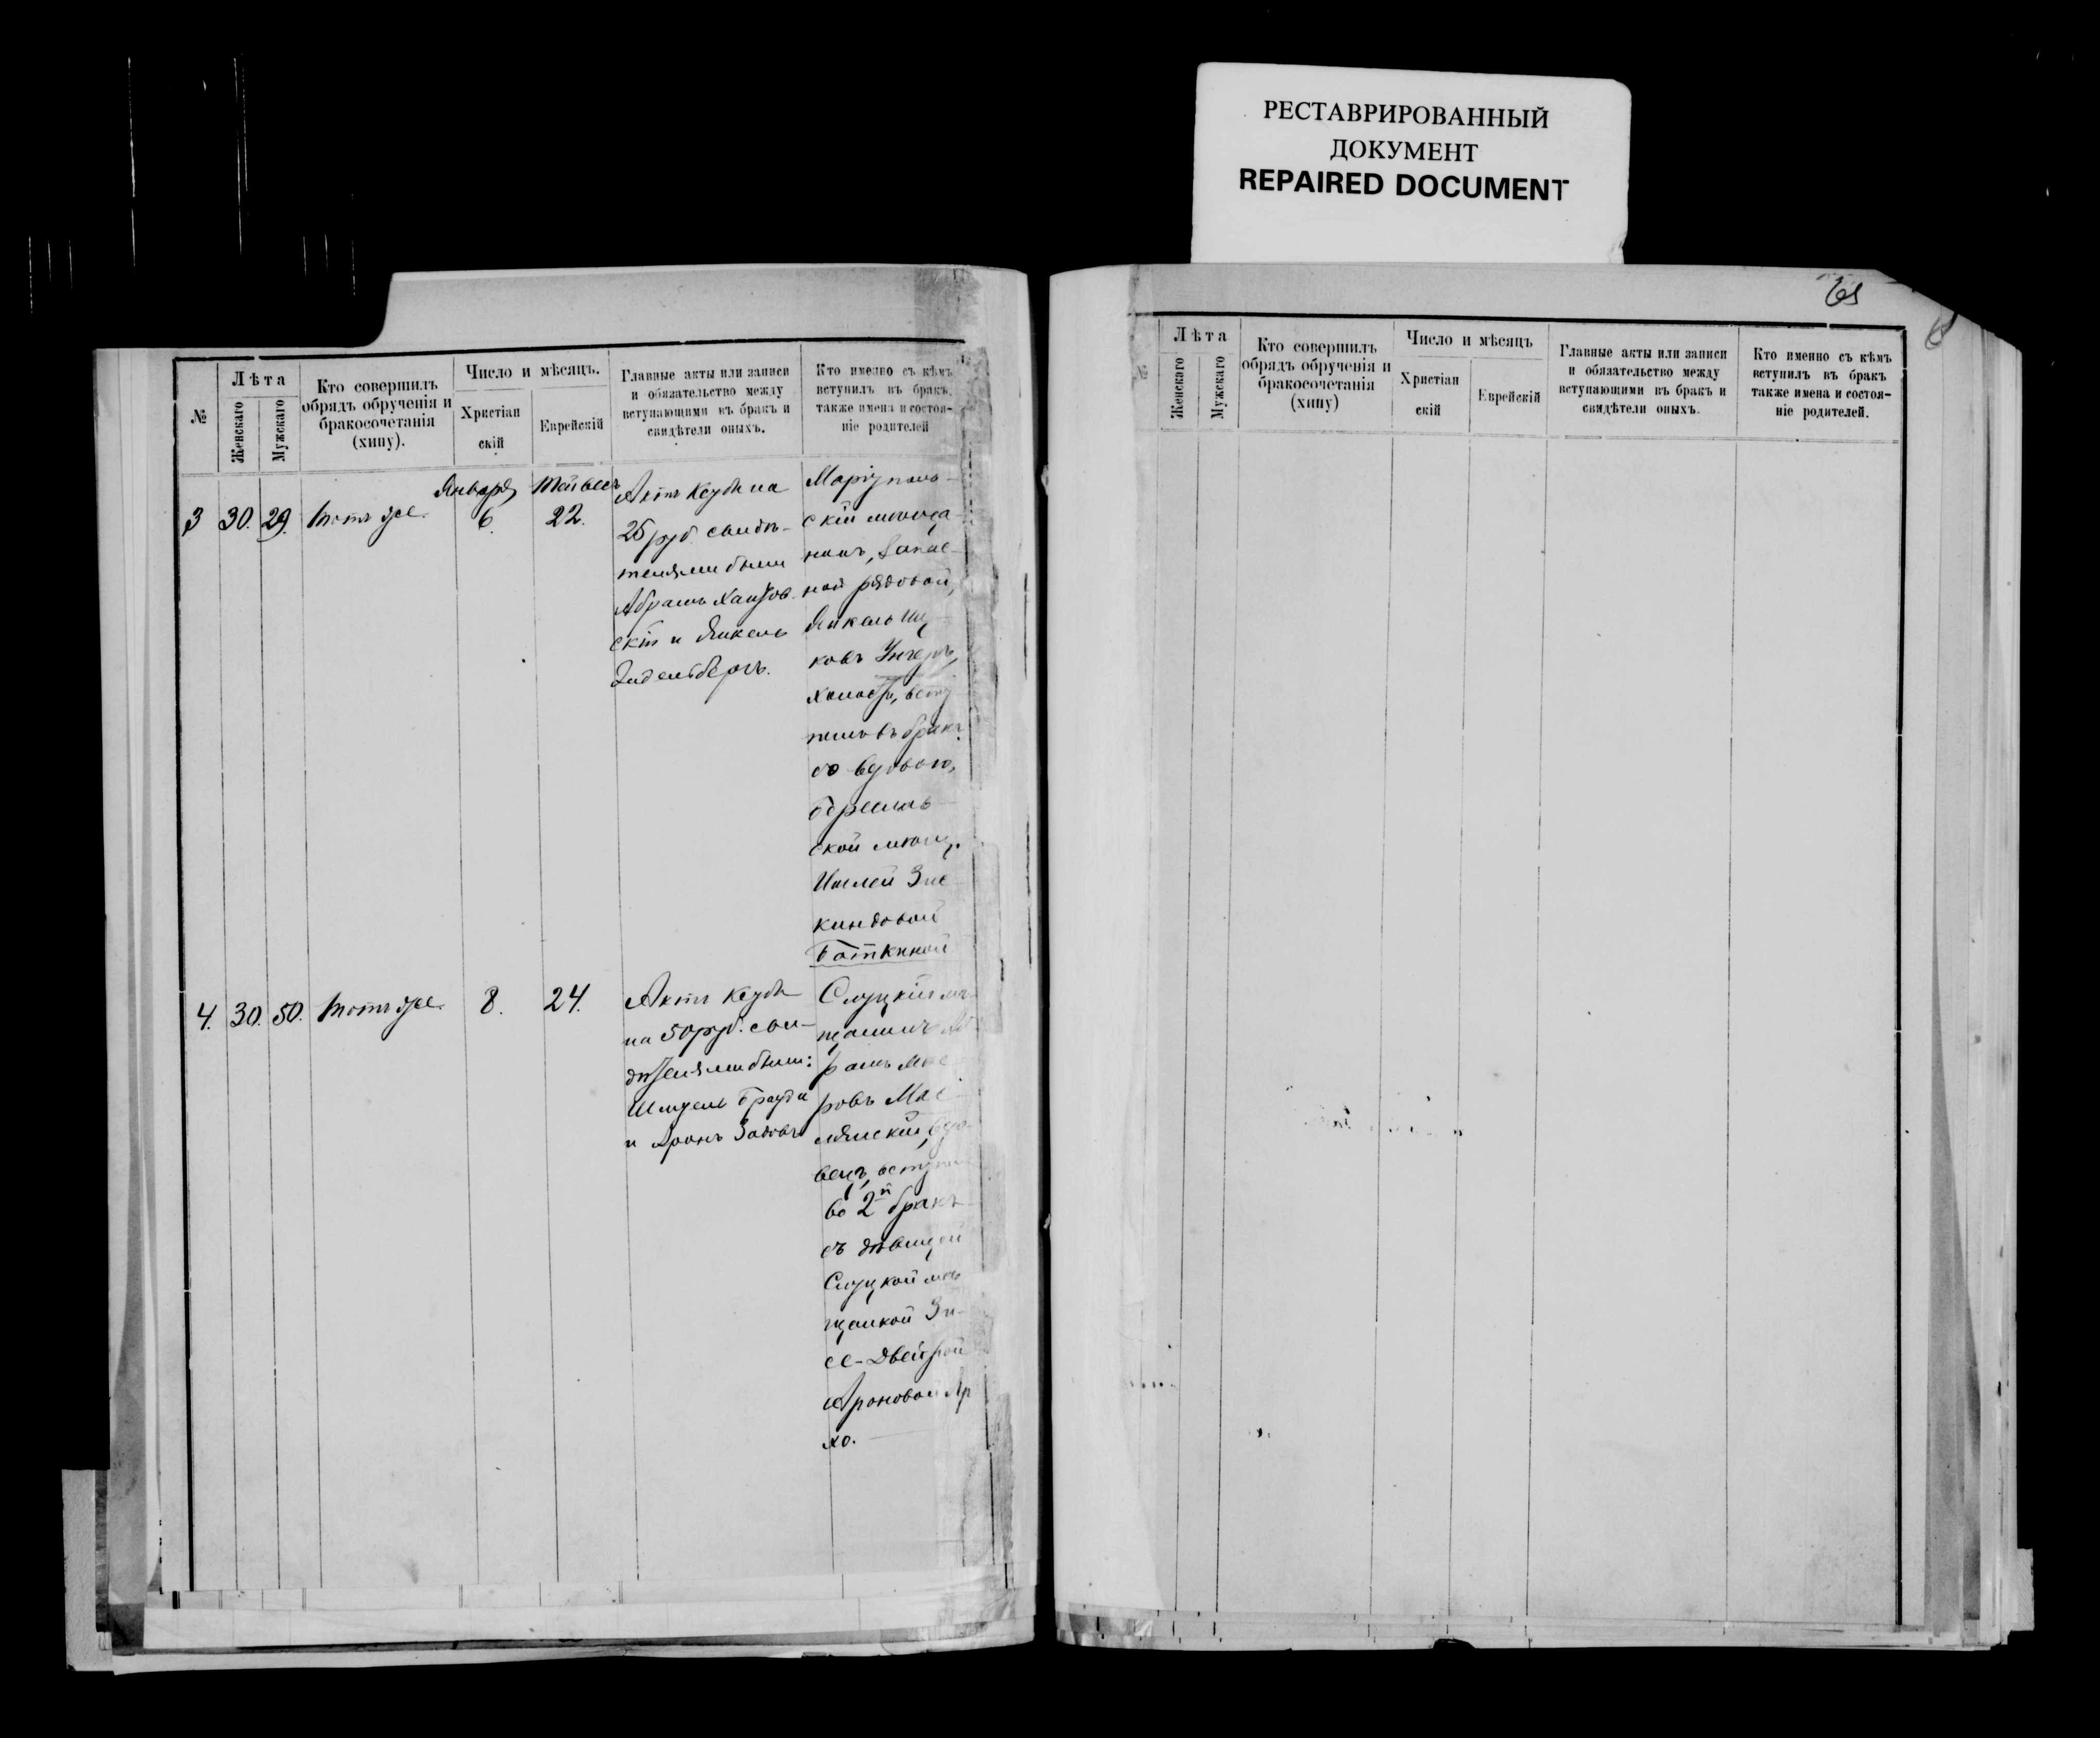 РЕСТАВРИРОВАННЫЙ
ДОКУМЕНТ
REPAIRED DOCUMENT
№
Лѣта
Женскаго
Мужскаго
Кто совершилъ
обрядъ обрученія и
бракосочетанія
(хипу).
Число и мѣсяцъ.
Христіан
скій
Еврейскій
Главные акты или записи
и обязательство между
вступающими въ бракъ и
свидѣтели оныхъ.
Кто именно съ кѣмъ
вступилъ въ бракъ,
также имена и состоя-
ніе родителей
3
30.
29.
тотъ же.
Января
6.
22.
Актъ Ксуба на
25 руб. свидѣ-
телями были
Абрамъ
скій и Янкель
Маріуполь-
скій мѣща-
нинъ, запас-
ной рядовой,
Янкель
ковъ Унгеръ,
холостъ, всту
пилъ въ бракъ
со вдовою,
ской мѣщ.
киндовой
Боткиной
4.
30.
50.
тотъ же.
8.
24.
Актъ Ксуба
на 50 руб. сви-
дѣтелями были:
Шмуель Брауда
и Аронъ Задовъ
Слуцкій мѣ-
щанинъ Аб
рамъ
ровъ
вдо-
вецъ, вступи
во 2й бракъ
съ дѣвицей
Слуцкой мѣ
щанкой Зи-
се-Двейрой
Ароновой
хо.
65
№
Лѣта
Женскаго
Мужскаго
Кто совершилъ
обрядъ обрученія и
бракосочетанія
(хипу)
Число и мѣсяцъ
Христіан
скій
Еврейскій
Главные акты или записи
и обязательство между
вступающими въ бракъ и
свидѣтели оныхъ.
Кто именно съ кѣмъ
вступилъ въ бракъ
также имена и состоя-
ніе родителей.